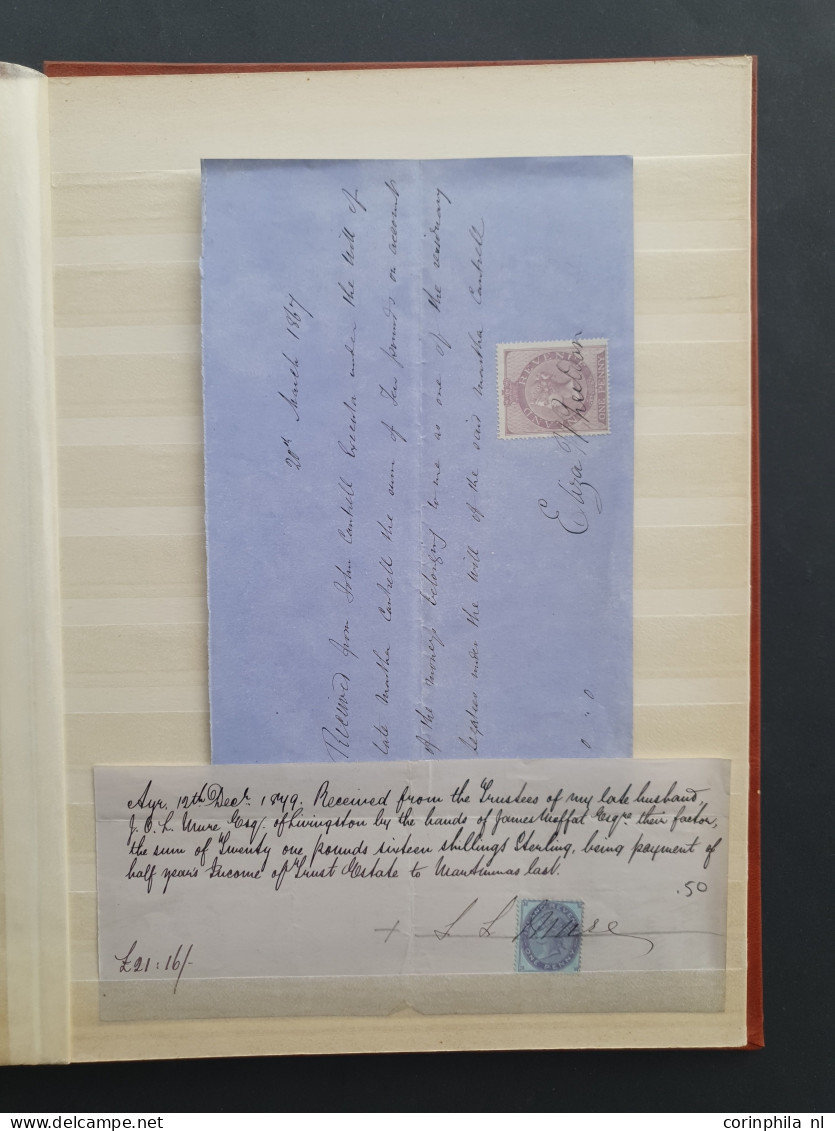 20th March 1867
Received from John Cantrell Executor under the Will of
late Martha Cantrell the sum of Ten pounds on account
of the moneys belonging to me as one of the residuary
legatees under the will of the said Martha Cantrell
INLAND REVENUE
ONE PENNY
Eliza
0 " 0
Ayr. 12th Decr. 1879. Received from the Trustees of my late husband,
J. O. L. Mure Esq/. of Livingston by the hands of James Moffat Esqre. their factor,
the sum of Twenty one pounds sixteen shillings Sterling, being payment of
half year's Income of Trust Estate to Martinmas last.
.50
+ L L Mure
ONE PENNY
£21:16/-
corinphila nl